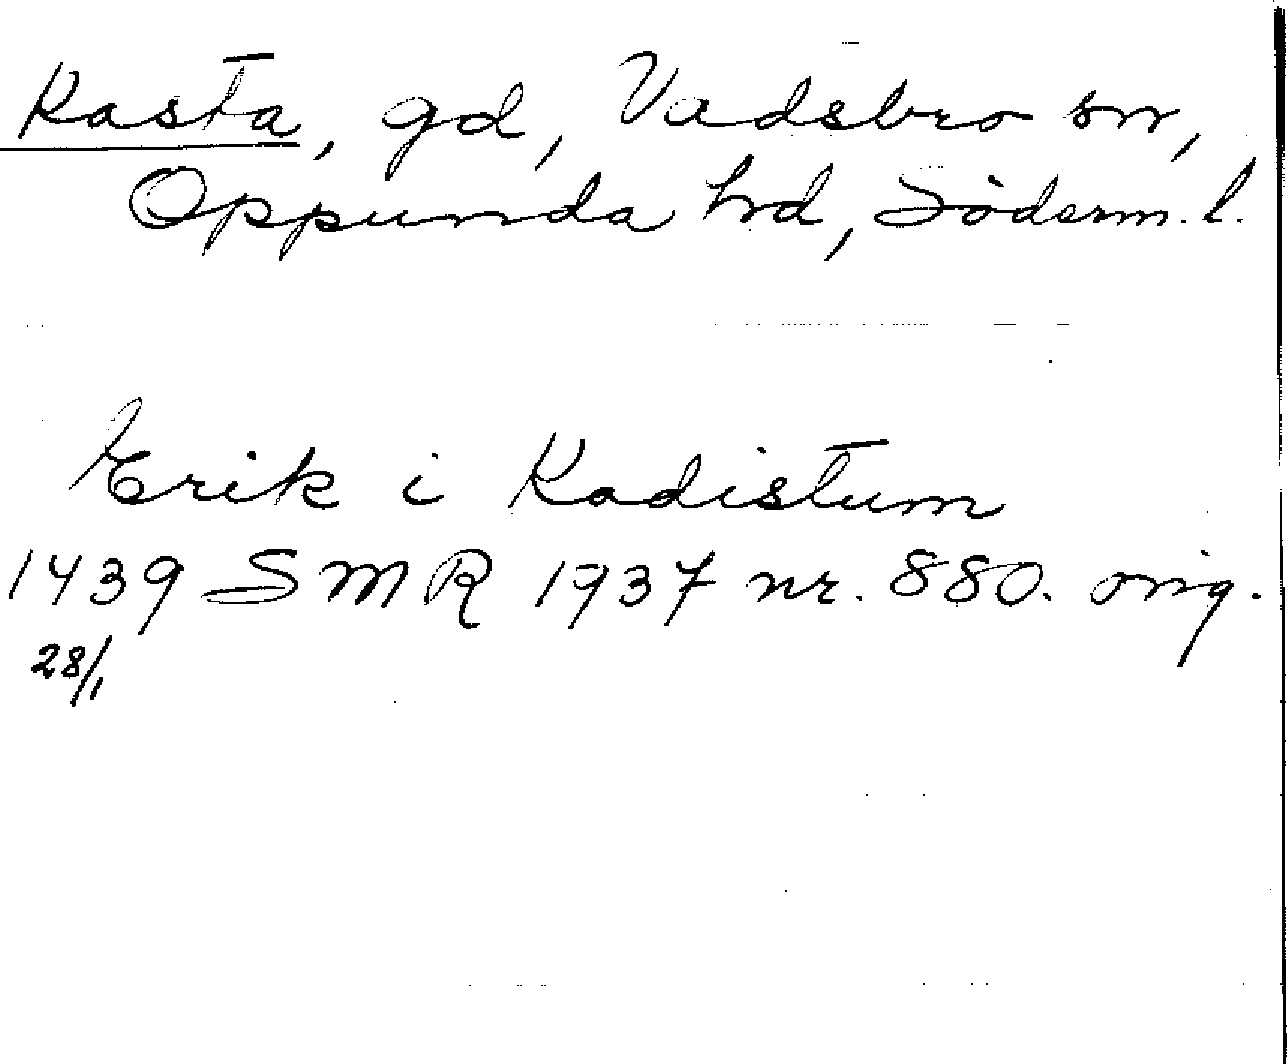 Rasta, gd, Vadsbro sn,
Oppunda hd, Söderm. l.
Erik i Radistum
1439 SMR 1937 nr. 880. orig.
28/1